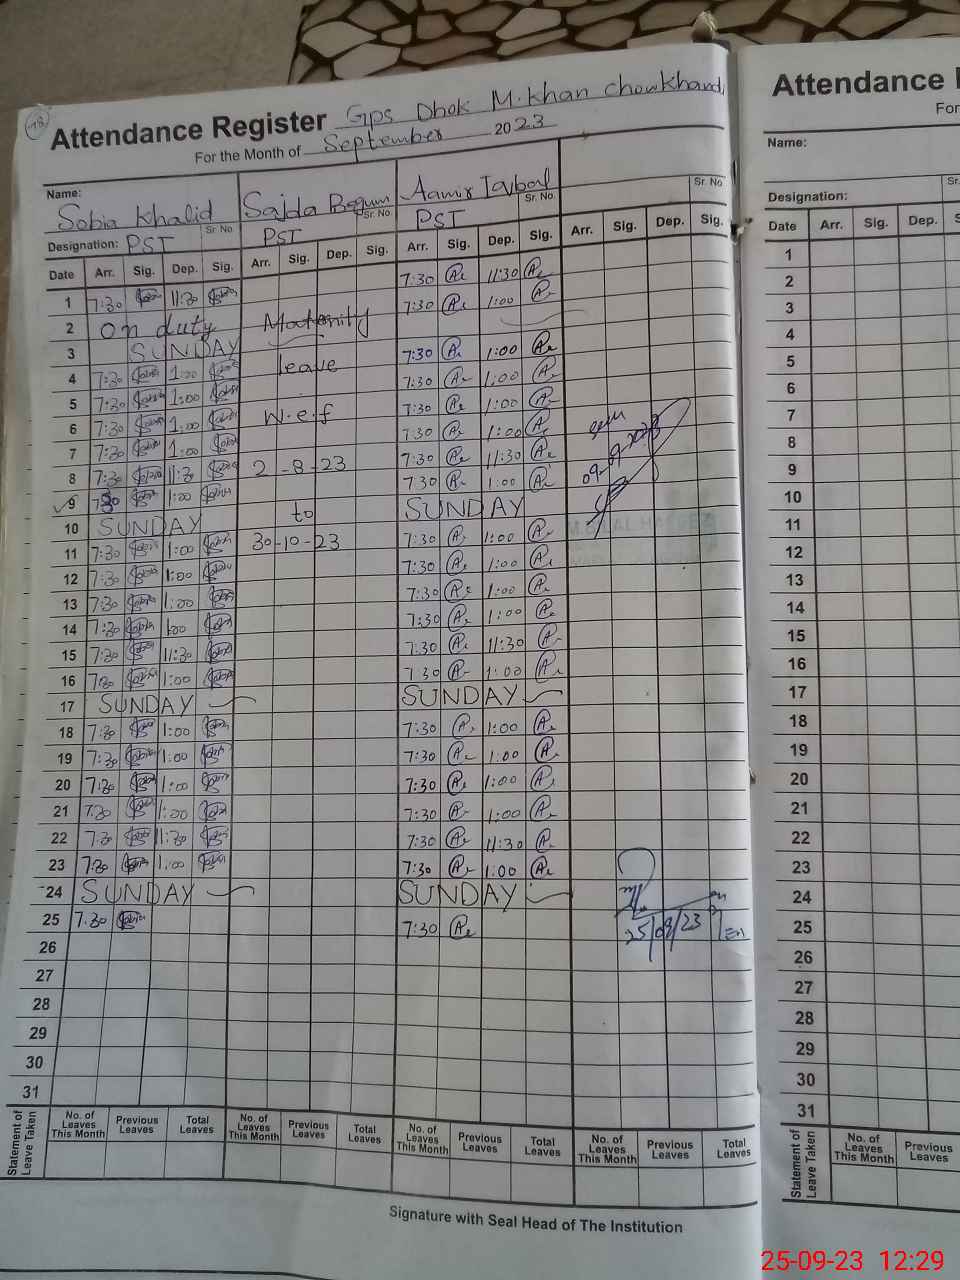 18
Attendance Register GPS Dhok M. Khan Chowkhandi
For the Month of September 2023
Name: Sobia Khalid Sajda Begum Aamir Iqbal
Sr. No. Sr. No. Sr. No. Sr. No.
Designation: PST PST PST
Date Arr. Sig. Dep. Sig. Arr. Sig. Dep. Sig. Arr. Sig. Dep. Sig. Arr. Sig. Dep. Sig.
1 7:30 11:30 7:30 11:30
2 On duty Maternity 7:30 1:00
3 SUNDAY
4 7:30 1:00 leave 7:30 1:00
5 7:30 1:00 7:30 1:00
6 7:30 1:00 W.e.f 7:30 1:00
7 7:30 1:00 7:30 1:00
8 7:30 11:30 2-8-23 7:30 11:30
9 7:30 1:00 7:30 1:00 09-09-2023
10 SUNDAY to SUNDAY
11 7:30 1:00 30-10-23 7:30 1:00
12 7:30 1:00 7:30 1:00
13 7:30 1:00 7:30 1:00
14 7:30 1:00 7:30 1:00
15 7:30 11:30 7:30 11:30
16 7:30 1:00 7:30 1:00
17 SUNDAY SUNDAY
18 7:30 1:00 7:30 1:00
19 7:30 1:00 7:30 1:00
20 7:30 1:00 7:30 1:00
21 7:30 1:00 7:30 1:00
22 7:30 11:30 7:30 11:30
23 7:30 1:00 7:30 1:00
24 SUNDAY SUNDAY
25 7.30 7:30 25/09/23
26
27
28
29
30
31
Statement of Leave Taken
No. of Leaves This Month Previous Leaves Total Leaves No. of Leaves This Month Previous Leaves Total Leaves No. of Leaves This Month Previous Leaves Total Leaves No. of Leaves This Month Previous Leaves Total Leaves
Signature with Seal Head of The Institution
Attendance
For
Name:
Designation: Sr.
Date Arr. Sig. Dep. S
1
2
3
4
5
6
7
8
9
10
11
12
13
14
15
16
17
18
19
20
21
22
23
24
25
26
27
28
29
30
31
Statement of Leave Taken
No. of Leaves This Month Previous Leaves
25-09-23 12:29